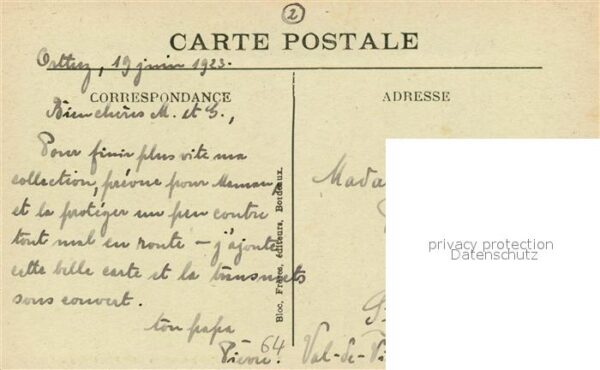 2
CARTE POSTALE
Orthez, 19 juin 1923.
CORRESPONDANCE
ADRESSE
Bien chères M. et S.,
Pour finir plus vite ma
collection, prévue pour Maman,
et la protéger un peu contre
tout mal en route — j'ajoute
cette belle carte et la transmets
sous couvert.
ton papa
Pierre.
64
Bloc, Frères, éditeurs, Bordeaux.
Mada
Val-de-
privacy protection
Datenschutz